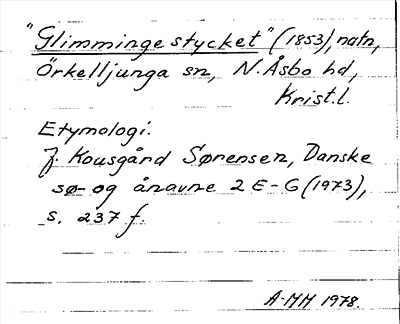 "Glimmingestycket" (1853), natn,
Örkelljunga sn, N. Åsbo hd,
Krist. l.
Etymologi.
J. Kousgård Sørensen, Danske
sø- og ånavne 2 E-G (1973),
s. 237 f.
A-MM 1978.